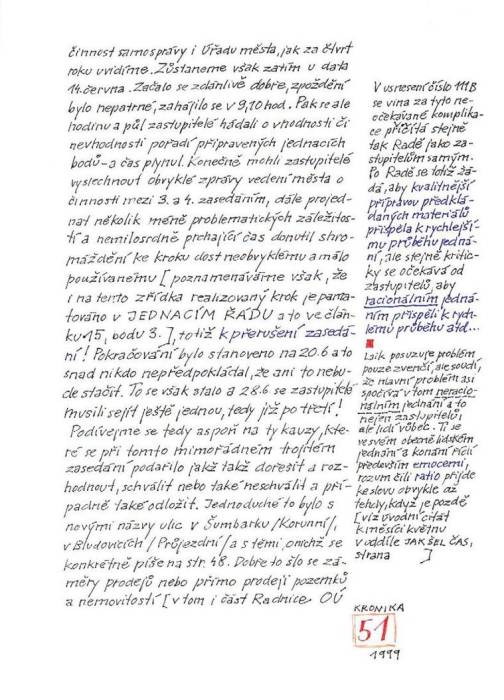 činnost samosprávy i Úřadu města, jak za čtvrt
roku uvidíme. Zůstaneme však zatím u data
14. června. Začalo se zdánlivě dobře, zpoždění
bylo nepatrné, zahájilo se v 9,10 hod. Pak se ale
hodinu a půl zastupitelé hádali o vhodnosti či
nevhodnosti pořadí připravených jednacích
bodů - a čas plynul. Konečně mohli zastupitelé
vyslechnout obvyklé zprávy vedení města o
činnosti mezi 3. a 4. zasedáním, dále projed-
nat několik méně problematických záležitos-
tí a nemilosrdně prchající čas donutil shro-
máždění ke kroku dost neobvyklému a málo
používanému [ poznamenáváme však, že
i na tento zřídka realizovaný krok je pama-
továno v JEDNACÍM ŘÁDU a to ve člán-
ku 15, bodu 3. ], totiž k přerušení zasedá-
ní ! Pokračování bylo stanoveno na 20.6 a to
snad nikdo nepředpokládal, že ani to nebu-
de stačit. To se však stalo a 28.6 se zastupitelé
musili sejít ještě jednou, tedy již po třetí !
Podívejme se tedy aspoň na ty kauzy, kte-
ré se při tomto mimořádném trojitém
zasedání podařilo jakž takž dořešit a roz-
hodnout, schválit nebo také neschválit a pří-
padně také odložit. Jednoduché to bylo s
novými názvy ulic v Šumbarku / Korunní /,
v Bludovicích / Průjezdní / a s těmi, o nichž se
konkrétně píše na str. 48. Dobře to šlo se zá-
měry prodejů nebo přímo prodeji pozemků
a nemovitostí [ v tom i část Radnice OÚ
V usnesení číslo 111B
se vina za tyto ne-
očekávané komplika-
ce přičítá stejně
tak Radě jako za-
stupitelům samým.
Po Radě se totiž žá-
dá, aby kvalitnější
přípravou předklá-
daných materiálů
přispěla k rychlejší-
mu průběhu jedná-
ní, ale stejně kritic-
ky se očekává od
zastupitelů, aby
racionálním jedná-
ním přispěli k rych-
lému průběhu atd...
Laik posuzuje problém
pouze zvenčí, ale soudí,
že hlavní problém asi
spočívá v tom neracio-
nálním jednání a to
nejen zastupitelů,
ale lidí vůbec. Ti se
ve svém obecně lidském
jednání a konání řídí
především emocemi,
rozum čili ratio přijde
ke slovu obvykle až
tehdy, když je pozdě
[ viz úvodní citát
k měsíci květnu
v oddíle JAK ŠEL ČAS,
strana ]
KRONIKA
51
1999